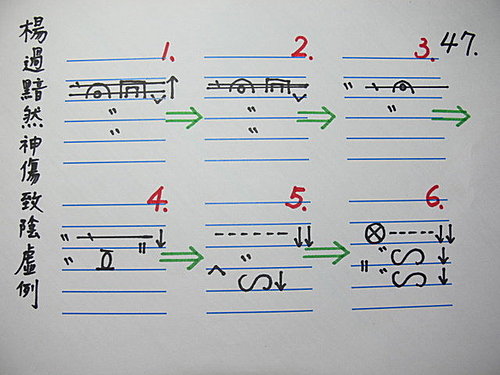 楊過黯然神傷致陰虛例
47.
1.
2.
3.
4.
5.
6.